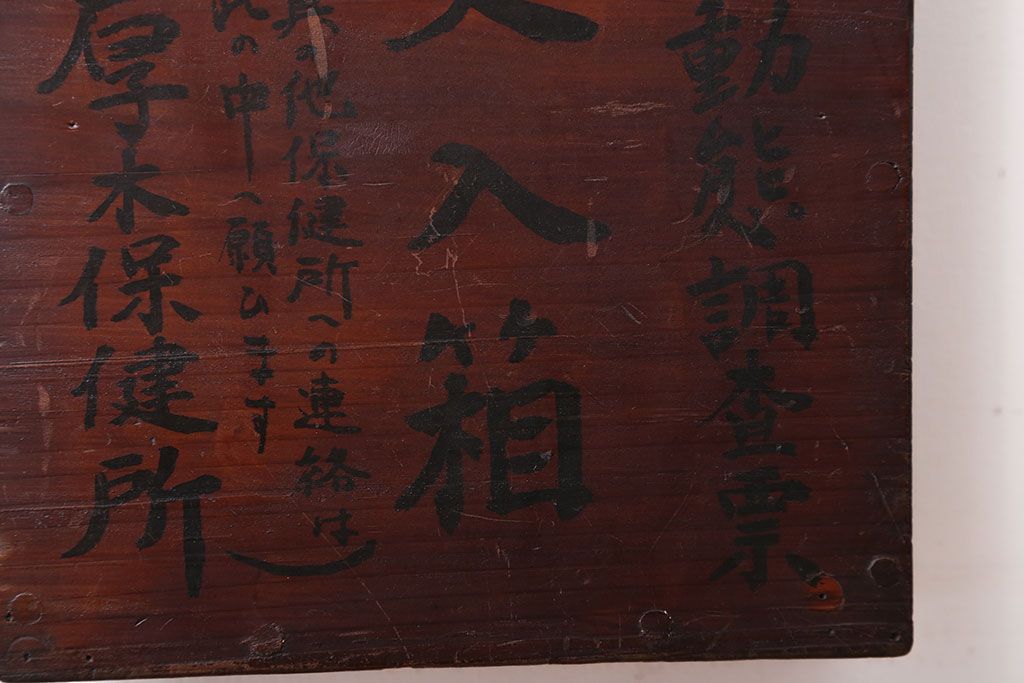 動態調査票
入箱
其の他保健所への連絡は
此の中へ願ひます
厚木保健所